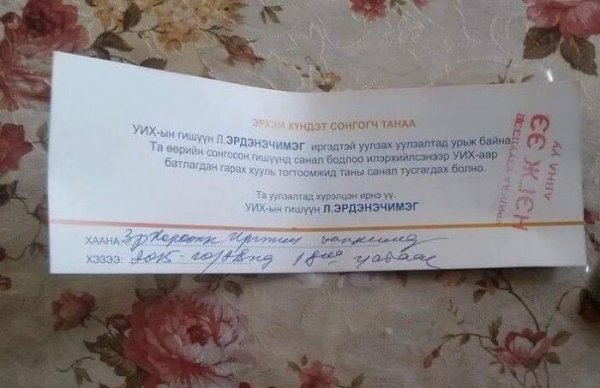 ЭРХЭМ ХҮНДЭТ СОНГОГЧ ТАНАА
УИХ-ын гишүүн Л.ЭРДЭНЭЧИМЭГ иргэдтэй уулзах уулзалтад урьж байна.
Та өөрийн сонгосон гишүүнд санал бодлоо илэрхийлсэнээр УИХ-аар
батлагдан гарах хууль тогтоомжид таны санал тусгагдах болно.
Та уулзалтад хүрэлцэн ирнэ үү.
УИХ-ын гишүүн Л.ЭРДЭНЭЧИМЭГ
ХААНА: 3-р хорооны Иргний танхимд
ХЭЗЭЭ: 2015-
АВНА УУ